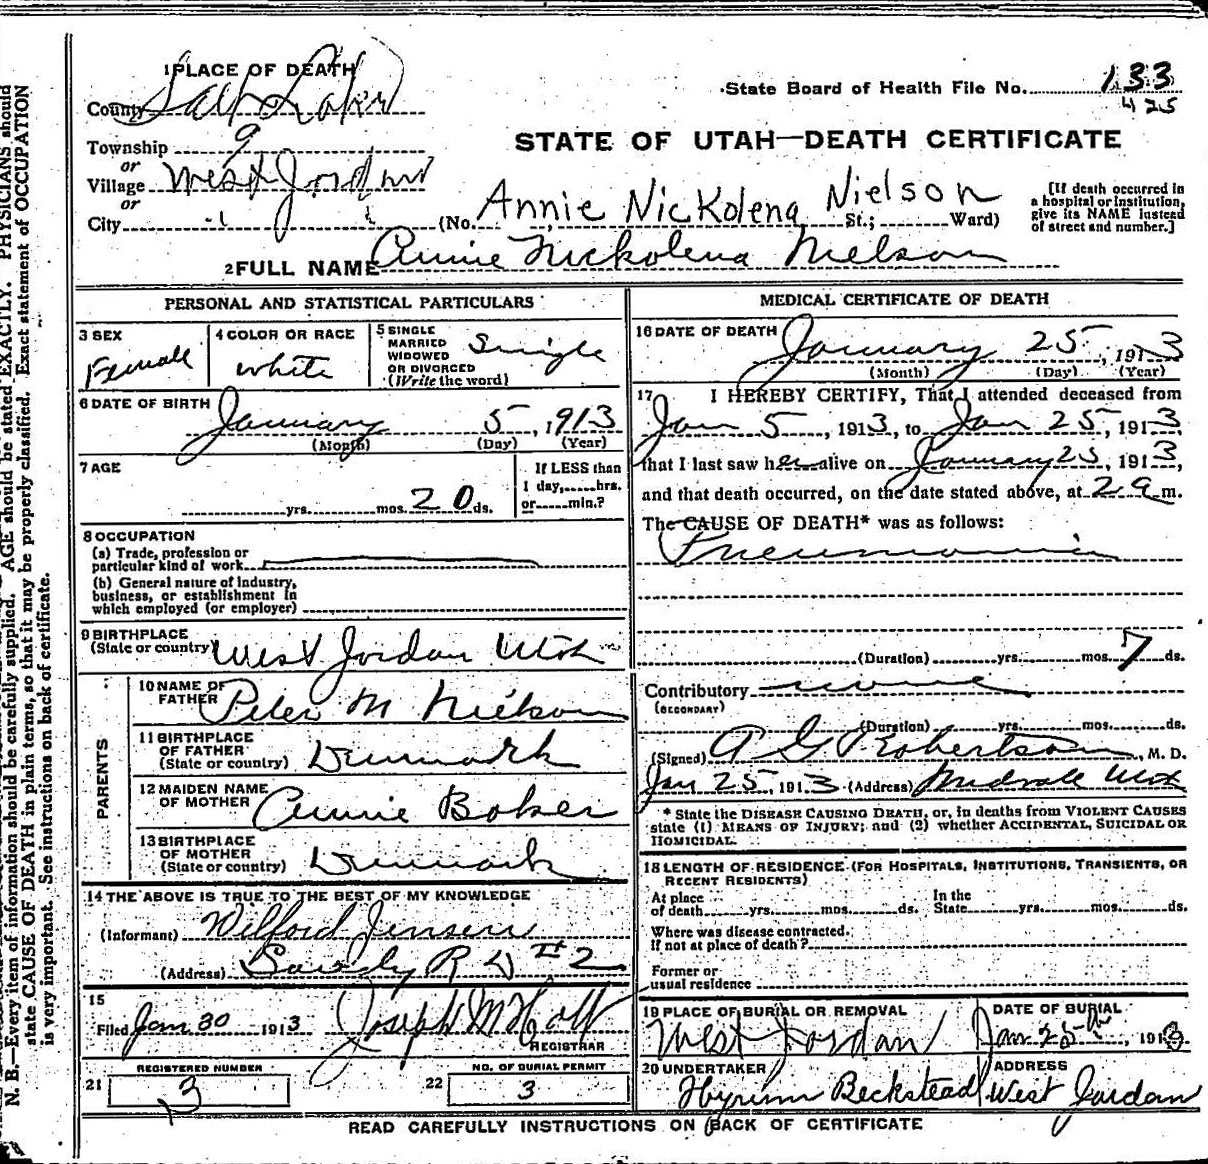 1 PLACE OF DEATH
County Salt Lake
State Board of Health File No. 133
425
Township 9
STATE OF UTAH—DEATH CERTIFICATE
or
Village West Jordan
or
City
(No. Annie Nickolena Nielson St.; Ward)
[If death occurred in a hospital or institution, give its NAME instead of street and number.]
2 FULL NAME Annie Nickolena Nielson
PERSONAL AND STATISTICAL PARTICULARS
3 SEX
Female
4 COLOR OR RACE
white
5 SINGLE
MARRIED
WIDOWED
OR DIVORCED
(Write the word)
Single
6 DATE OF BIRTH
January 5, 1913
(Month) (Day) (Year)
7 AGE
yrs. mos. 20 ds.
If LESS than
1 day, hrs.
or min.?
8 OCCUPATION
(a) Trade, profession or
particular kind of work
(b) General nature of industry,
business, or establishment in
which employed (or employer)
9 BIRTHPLACE
(State or country) West Jordan Utah
PARENTS
10 NAME OF
FATHER Peter M Nielson
11 BIRTHPLACE
OF FATHER
(State or country) Denmark
12 MAIDEN NAME
OF MOTHER Annie Boker
13 BIRTHPLACE
OF MOTHER
(State or country) Denmark
14 THE ABOVE IS TRUE TO THE BEST OF MY KNOWLEDGE
(Informant) Wilford Jensen
(Address) Sandy R D #2
15
Filed Jan 30 1913 Joseph M Holt
REGISTRAR
REGISTERED NUMBER
21 3
NO. OF BURIAL PERMIT
22 3
MEDICAL CERTIFICATE OF DEATH
16 DATE OF DEATH
January 25, 1913
(Month) (Day) (Year)
17 I HEREBY CERTIFY, That I attended deceased from
Jan 5, 1913, to Jan 25, 1913
that I last saw her alive on January 25, 1913,
and that death occurred, on the date stated above, at 2 a m.
The CAUSE OF DEATH* was as follows:
Pneumonia
(Duration) yrs. mos. 7 ds.
Contributory none
(SECONDARY)
(Duration) yrs. mos. ds.
(Signed) A G Robertson, M. D.
Jan 25, 1913 (Address) Midvale Utah
* State the DISEASE CAUSING DEATH, or, in deaths from VIOLENT CAUSES
state (1) MEANS OF INJURY; and (2) whether ACCIDENTAL, SUICIDAL OR
HOMICIDAL.
18 LENGTH OF RESIDENCE (FOR HOSPITALS, INSTITUTIONS, TRANSIENTS, OR
RECENT RESIDENTS)
At place
of death yrs. mos. ds.
In the
State yrs. mos. ds.
Where was disease contracted,
if not at place of death?
Former or
usual residence
19 PLACE OF BURIAL OR REMOVAL
West Jordan
DATE OF BURIAL
Jan 25th, 1913
20 UNDERTAKER
Hyrum Beckstead
ADDRESS
West Jordan
READ CAREFULLY INSTRUCTIONS ON BACK OF CERTIFICATE
N. B.—Every item of information should be carefully supplied. AGE should be stated EXACTLY. PHYSICIANS should
state CAUSE OF DEATH in plain terms, so that it may be properly classified. Exact statement of OCCUPATION
is very important. See instructions on back of certificate.